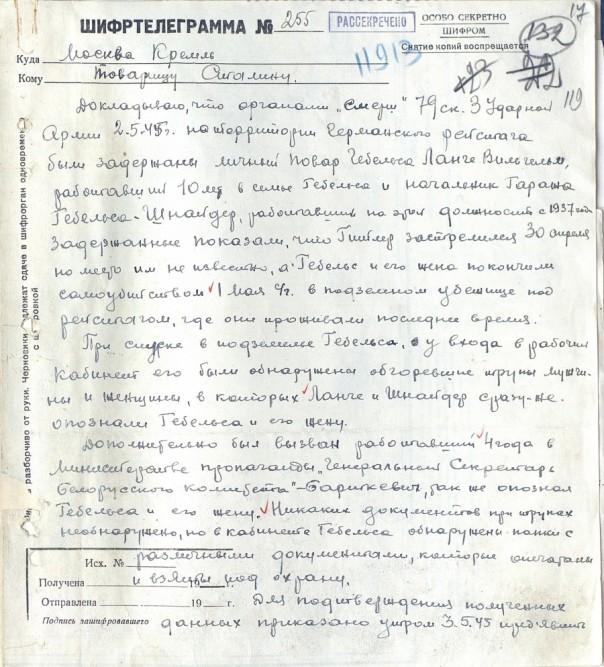 ШИФРТЕЛЕГРАММА № 255
РАССЕКРЕЧЕНО
ОСОБО СЕКРЕТНО
ШИФРОМ
Снятие копий воспрещается
17
132
11913
119
Куда Москва Кремль
Кому Товарищу Сталину.
Докладываю, что органами "Смерш" 79 ск. 3 Ударной
Армии 2.5.45г. на территории Германского рейстага
были задержаны личный повар Гебельса Ланге Вильгельм,
работавший 10 лет в семье Гебельса и начальник Гаража
Гебельса-Шнайдер, работавший на этой должности с 1937 года
Задержанные показали, что Гитлер застрелился 30 апреля
но место им не известно, а Гебельс и его жена покончили
самоубийством 1 мая с/г. в подземном убежище под
рейстагом, где они проживали последнее время.
При спуске в подземелье Гебельса, у входа в рабочий
кабинет его были обнаружены обгоревшие трупы мужчи-
ны и женщины, в которых Ланге и Шнайдер сразу-же
опознали Гебельса и его жену.
Дополнительно был вызван работавший 4 года в
министерстве пропаганды "Генеральный Секретарь
Белорусского комитета"-Бариткевич, так же опознал
Гебельса и его жену. Никаких документов при трупах
необнаружено, но в кабинете Гебельса обнаружены папки с
различными документами, которые опечатаны
и взяты под охрану.
Для подтверждения полученных
данных приказано утром 3.5.45 пред'явить
Исх. №
Получена
Отправлена 19 г.
Подпись зашифровавшего
разборчиво от руки. Черновики подлежат сдаче в шифрорган одновремен